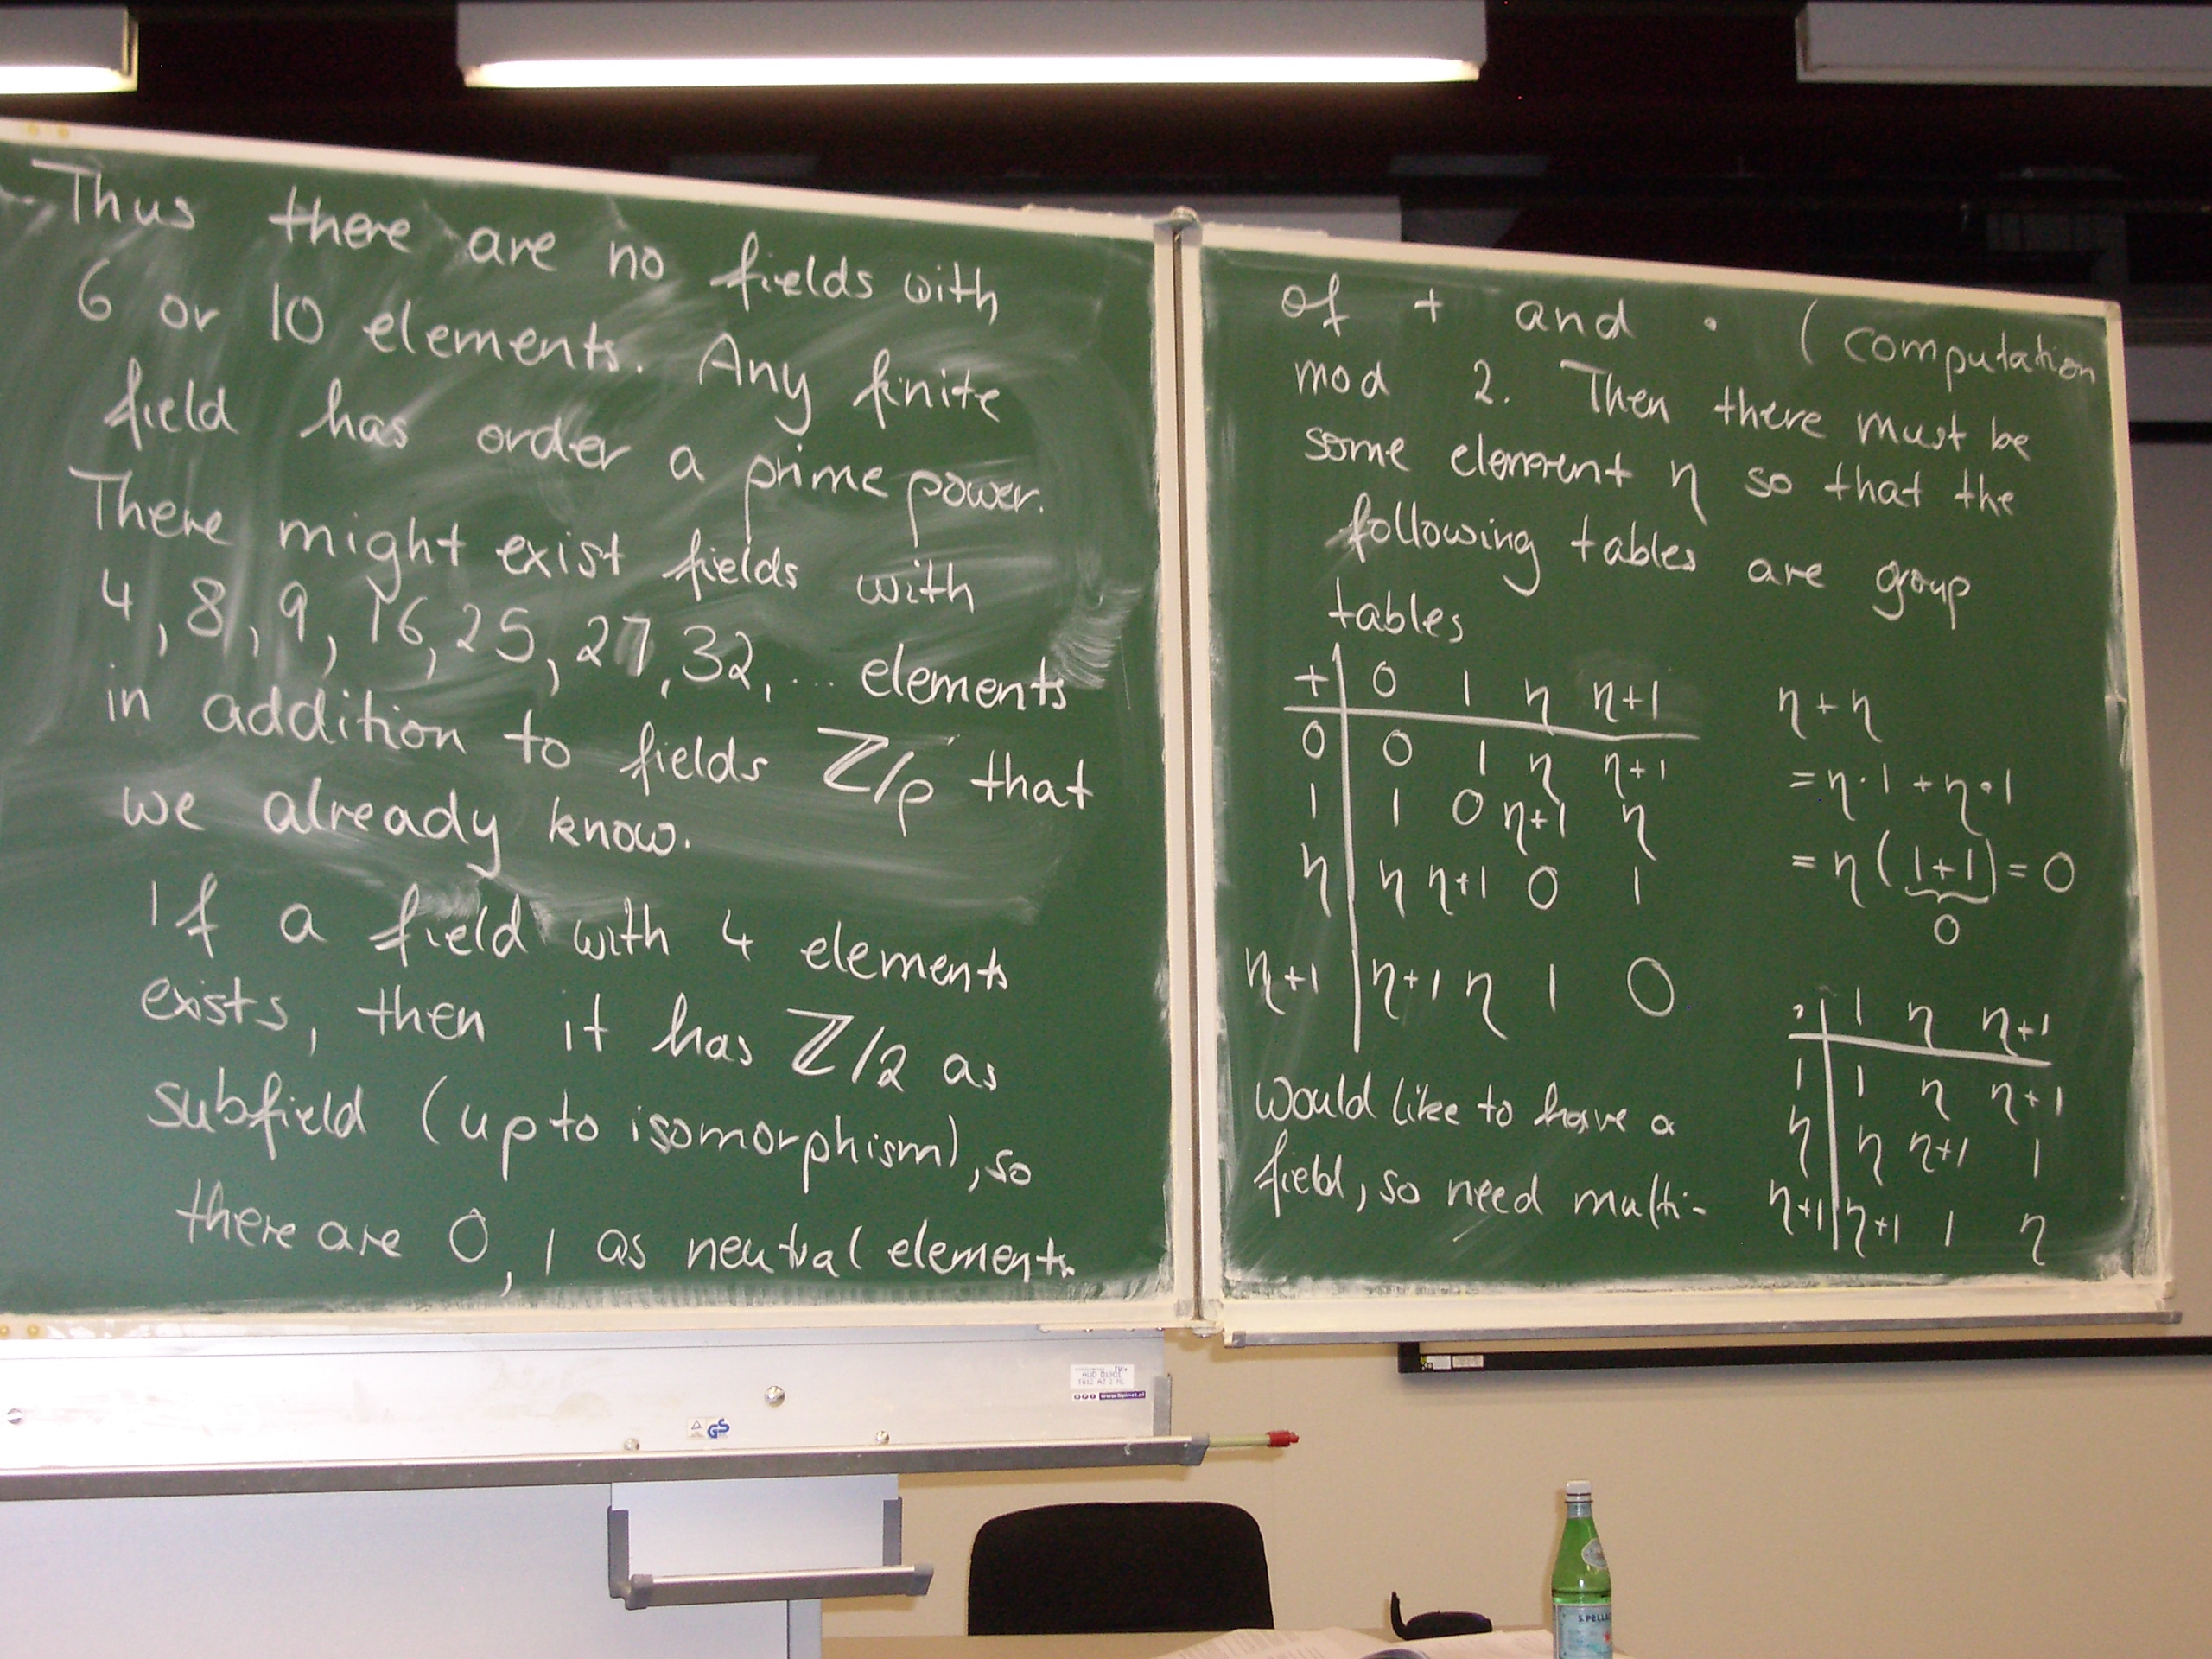 Thus there are no fields with
6 or 10 elements. Any finite
field has order a prime power.
There might exist fields with
4, 8, 9, 16, 25, 27, 32, ... elements
in addition to fields ℤ/p that
we already know.
If a field with 4 elements
exists, then it has ℤ/2 as
subfield (up to isomorphism), so
there are 0, 1 as neutral elements
of + and · (computation
mod 2. Then there must be
some element η so that the
following tables are group
tables
+ | 0 1 η η+1
0 | 0 1 η η+1
1 | 1 0 η+1 η
η | η η+1 0 1
η+1 | η+1 η 1 0
η + η
= η·1 + η·1
= η(1+1) = 0
0
would like to have a
field, so need multi-
· | 1 η η+1
1 | 1 η η+1
η | η η+1 1
η+1 | η+1 1 η
GS
S.PELLE